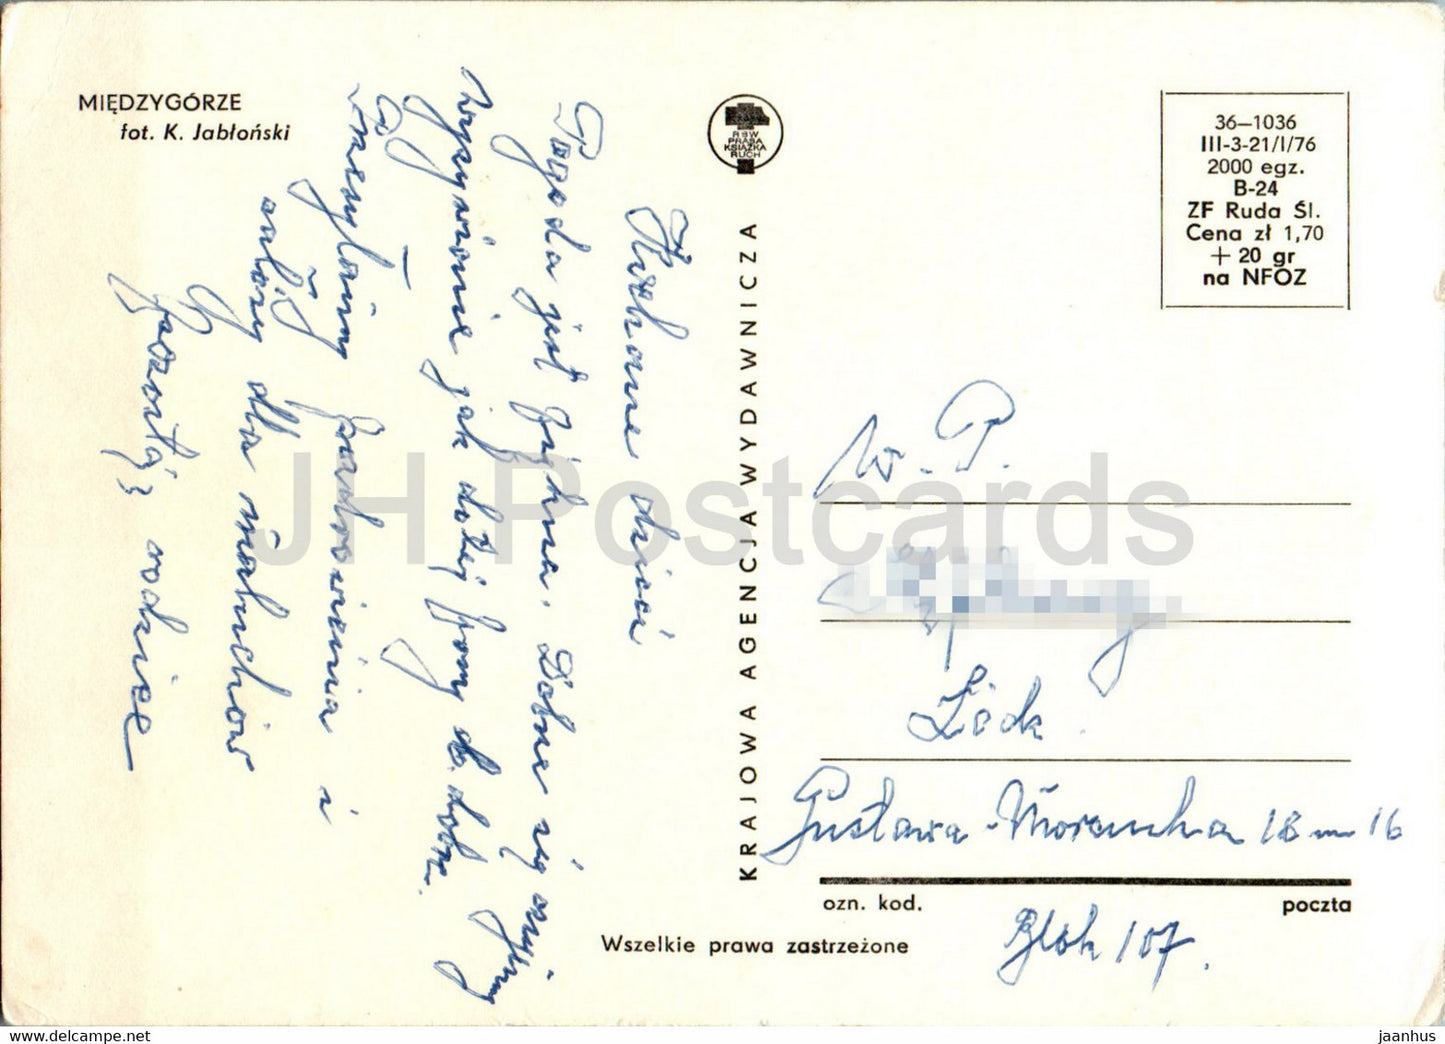 MIĘDZYGÓRZE
fot. K. Jabłoński
RSW
PRASA
KSIĄŻKA
RUCH
KRAJOWA AGENCJA WYDAWNICZA
36—1036
III-3-21/I/76
2000 egz.
B-24
ZF Ruda Śl.
Cena zł 1,70
+ 20 gr
na NFOZ
Kochane dzieci
Pogoda jest piękna. Dobrze się
jak dotąd b. dobrze.
Przesyłamy pozdrowienia i
całusy dla maluchów
rodzice
W. P.
Łódź
Gustawa Morcinka 18 m 16
Blok 107.
ozn. kod.
poczta
Wszelkie prawa zastrzeżone
JH Postcards
www.jhpostcards.com
jaanhus